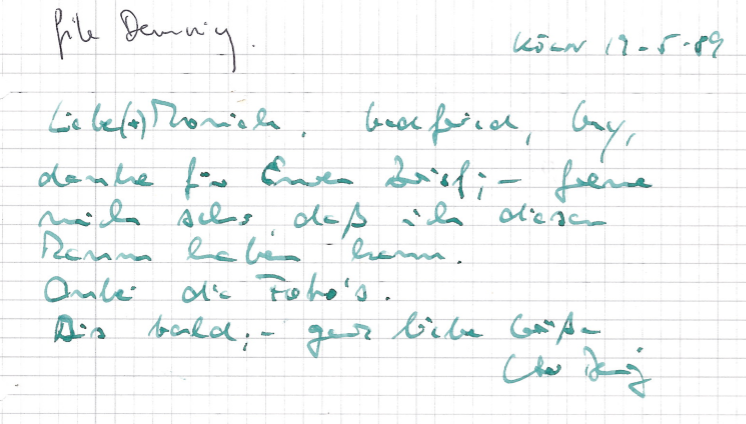 file Demnig.
KÖLN 19-5-89
Liebe(r) Monica, Godfried, Guy,
danke für Euren Brief; – freue
mich sehr daß ich diesen
Raum haben kann.
Anbei die Foto's.
Bis bald; – ganz liebe Grüße